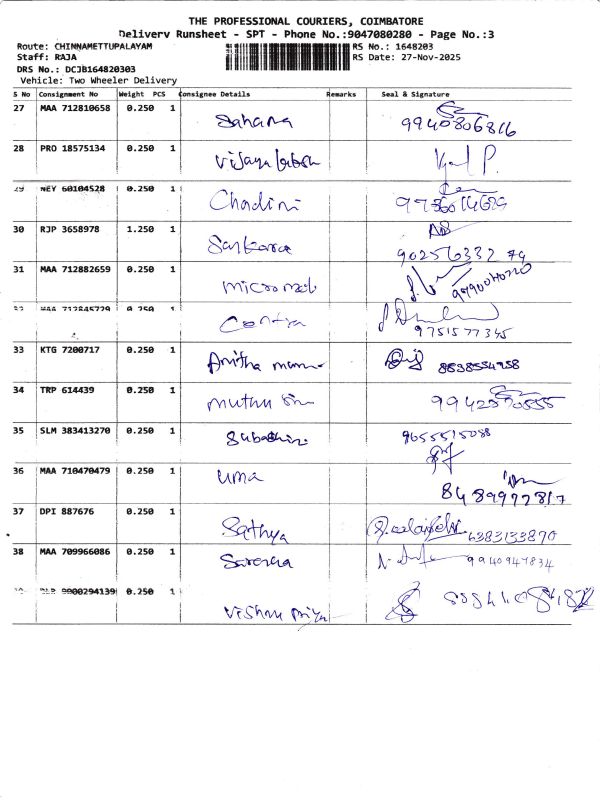 THE PROFESSIONAL COURIERS, COIMBATORE
Delivery Runsheet - SPT - Phone No.:9047080280 - Page No.:3
Route: CHINNAMETTUPALAYAM RS No.: 1648203
Staff: RAJA RS Date: 27-Nov-2025
DRS No.: DCJB164820303
Vehicle: Two Wheeler Delivery
S No Consignment No Weight PCS Consignee Details Remarks Seal & Signature
27 MAA 712810658 0.250 1 Sahana
9940806816
28 PRO 18575134 0.250 1
29 NEY 60104528 0.250 1 Chadini
30 RJP 3658978 1.250 1
9025633279
31 MAA 712882659 0.250 1
32 MAA 712845729 0.250 1
9751577345
33 KTG 7200717 0.250 1 Anitha
8838554958
34 TRP 614439 0.250 1 muthu
9942370555
35 SLM 383413270 0.250 1
9655515088
36 MAA 710470479 0.250 1 uma
8489977817
37 DPI 887676 0.250 1 Sathya 6383133870
38 MAA 709966086 0.250 1 9940947834
0.250 1 Vishnu Priya